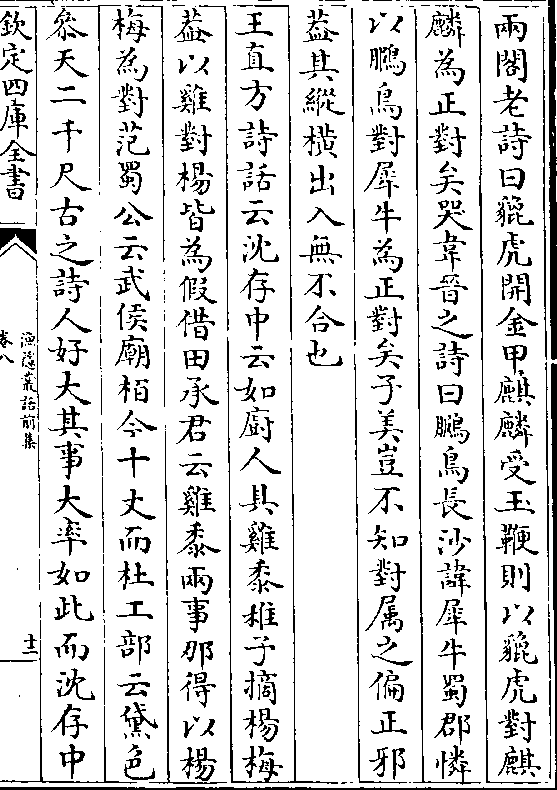 兩閣老詩曰貔虎開金甲麒麟受玉鞭則以貔虎對麒
麟為正對矣哭韋晉之詩曰鵩鳥長沙諱犀牛蜀郡憐
以鵩鳥對犀牛為正對矣子美豈不知對属之偏正邪
葢其縱横出入無不合也
王直方詩話云沈存中云如廚人具雞黍稚子摘楊梅
葢以雞對楊皆為假借田承君云雞黍兩事那得以楊
梅為對范蜀公云武侯廟栢今十丈而杜工部云黛色
叅天二千尺古之詩人好大其事大率如此而沈存中
欽定四庫全書
漁隱叢話前集
卷八
十三